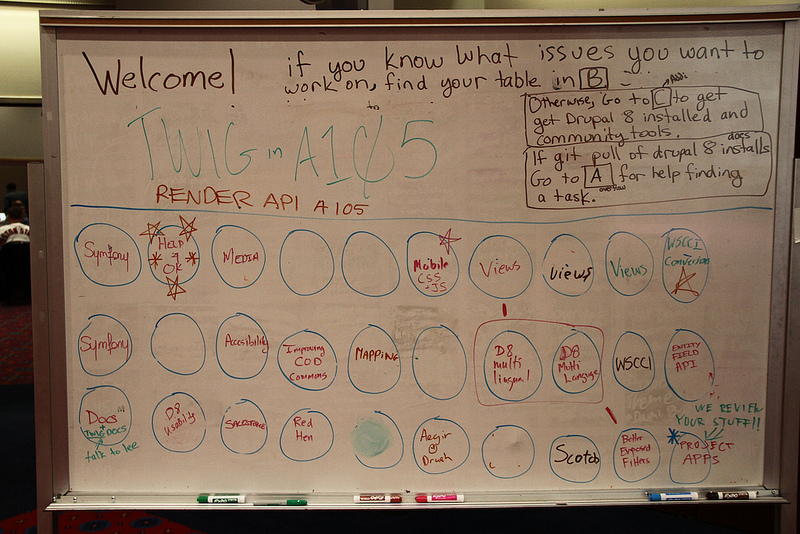 Welcome! if you know what issues you want to
work on, find your table in B
Otherwise, Go to C to get
get Drupal 8 installed and
community tools.
docs
If git pull of drupal 8 installs
Go to A for help finding
overflow
a task.
TWIG in A105
RENDER API A105
Symfony
HELP
OK
MEDIA
Mobile
CSS
+JS
Views
Views
Views
WSCCI
Conversion
Symfony
Accesibility
Improving
COD
Commons
MAPPING
D8
multi
lingual
D8
Multi
Language
WSCCI
ENTITY
FIELD
API
Docs
+
Twig DOCS
talk to lee
D8
Usability
SALESFORCE
Red
Hen
Aegir
or
Drush
Scotch
Better
Exposed
Filters
WE REVIEW
YOUR STUFF!!
PROJECT
APPS
EXPO
EXPO